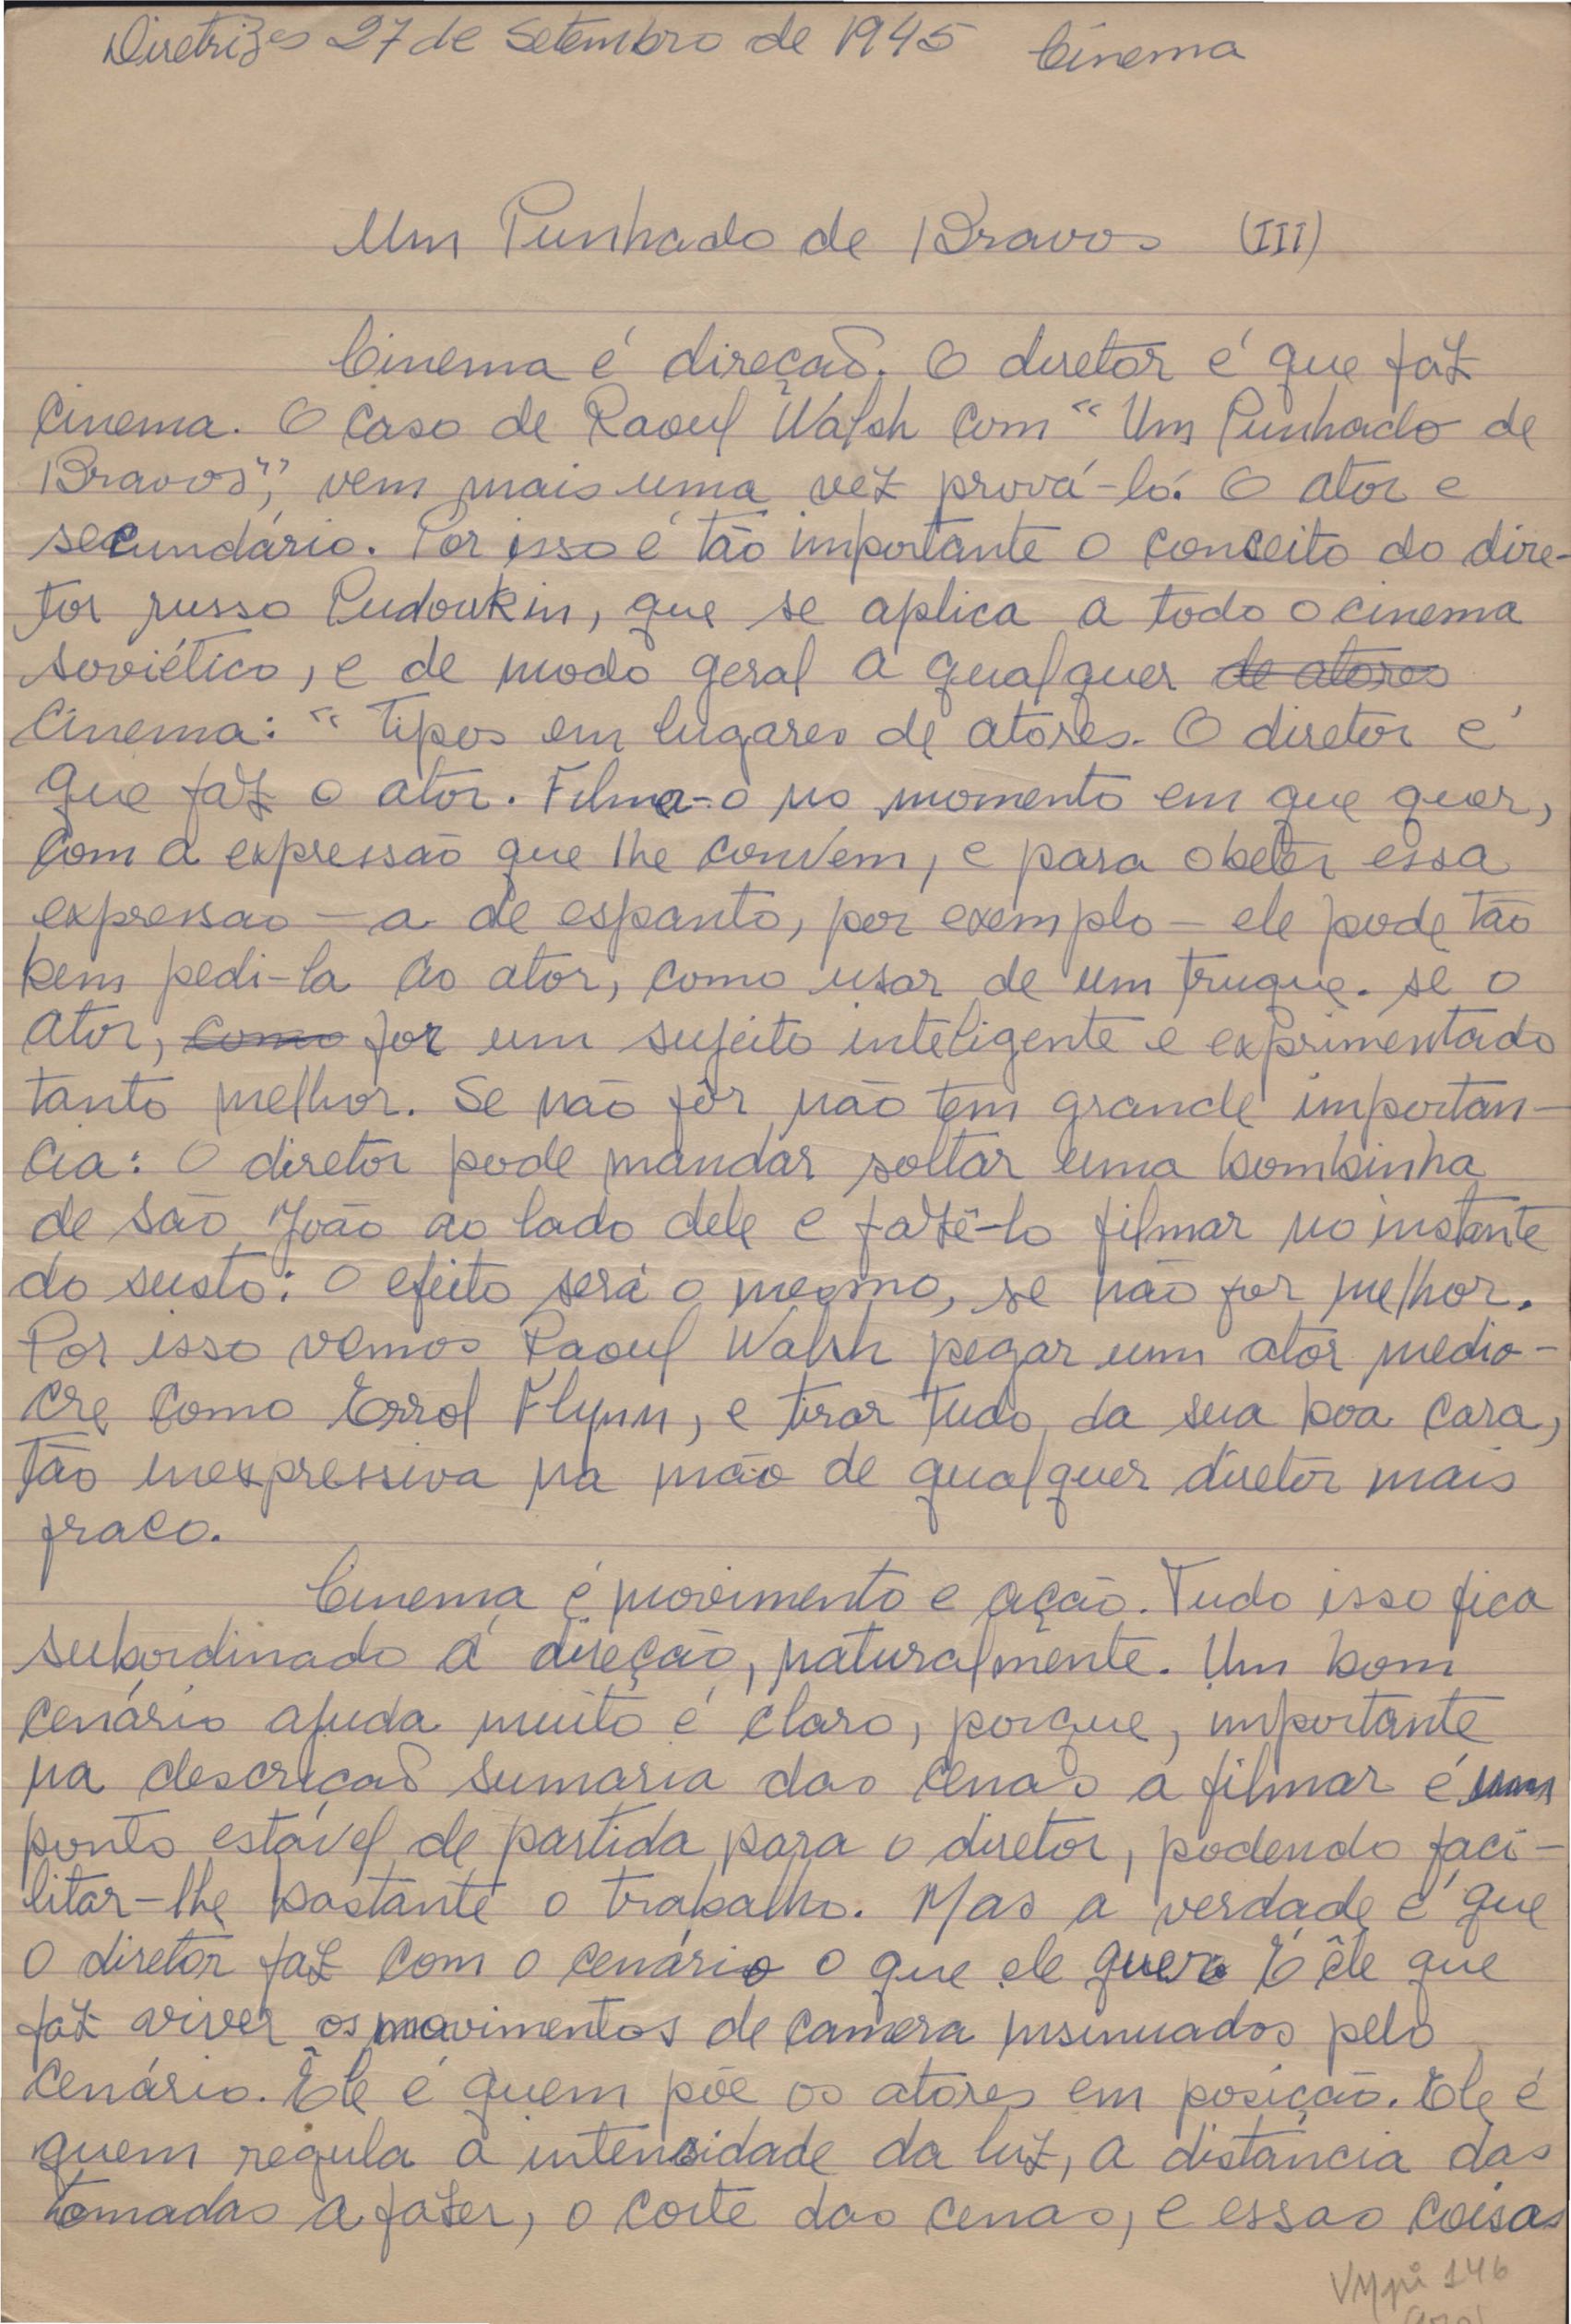 Diretrizes 27 de Setembro de 1945 Cinema
Um Punhado de Bravos (III)
Cinema é direção. O diretor é que faz
cinema. O caso de Raoul Walsh com "Um Punhado de
Bravos", vem mais uma vez prová-ló. O ator e
secundário. Por isso é tão importante o conceito do dire-
tor russo Pudovkin, que se aplica a todo o cinema
soviético, e de modo geral a qualquer de atores
Cinema: "Tipos em lugares de atores. O diretor é
que faz o ator. Filma-o no momento em que quer,
com a expressão que lhe convém, e para obeter essa
expressao - a de espanto, por exemplo - ele pode tão
bem pedi-la ao ator, como usar de um truque. se o
ator, como for um sujeito inteligente e exprimentado
tanto melhor. Se não fôr não tem grande importan-
cia: O diretor pode mandar soltar uma bombinha
de são João ao lado dele e fazê-lo filmar no instante
do susto: o efeito será o mesmo, se não for melhor.
Por isso vemos Raoul Walsh pegar um ator medio-
cre como Errol Flynn, e tirar tudo da sua boa cara,
tão inexpressiva na mão de qualquer diretor mais
fraco.
Cinema é movimento e ação. Tudo isso fica
subordinado á direção, naturalmente. Um bom
cenário ajuda muito é claro, porque, importante
na descrição sumaria das cenas a filmar é um
ponto estável de partida para o diretor, podendo faci-
litar-lhe bastante o trabalho. Mas a verdade é que
o diretor faz com o cenário o que ele quer. É êle que
faz viver os movimentos de camera insinuados pelo
cenário. Êle é quem põe os atores em posição. Ele é
quem regula a intensidade da luz, a distância das
tomadas a fazer, o corte das cenas, e essas coisas
VMpi 146